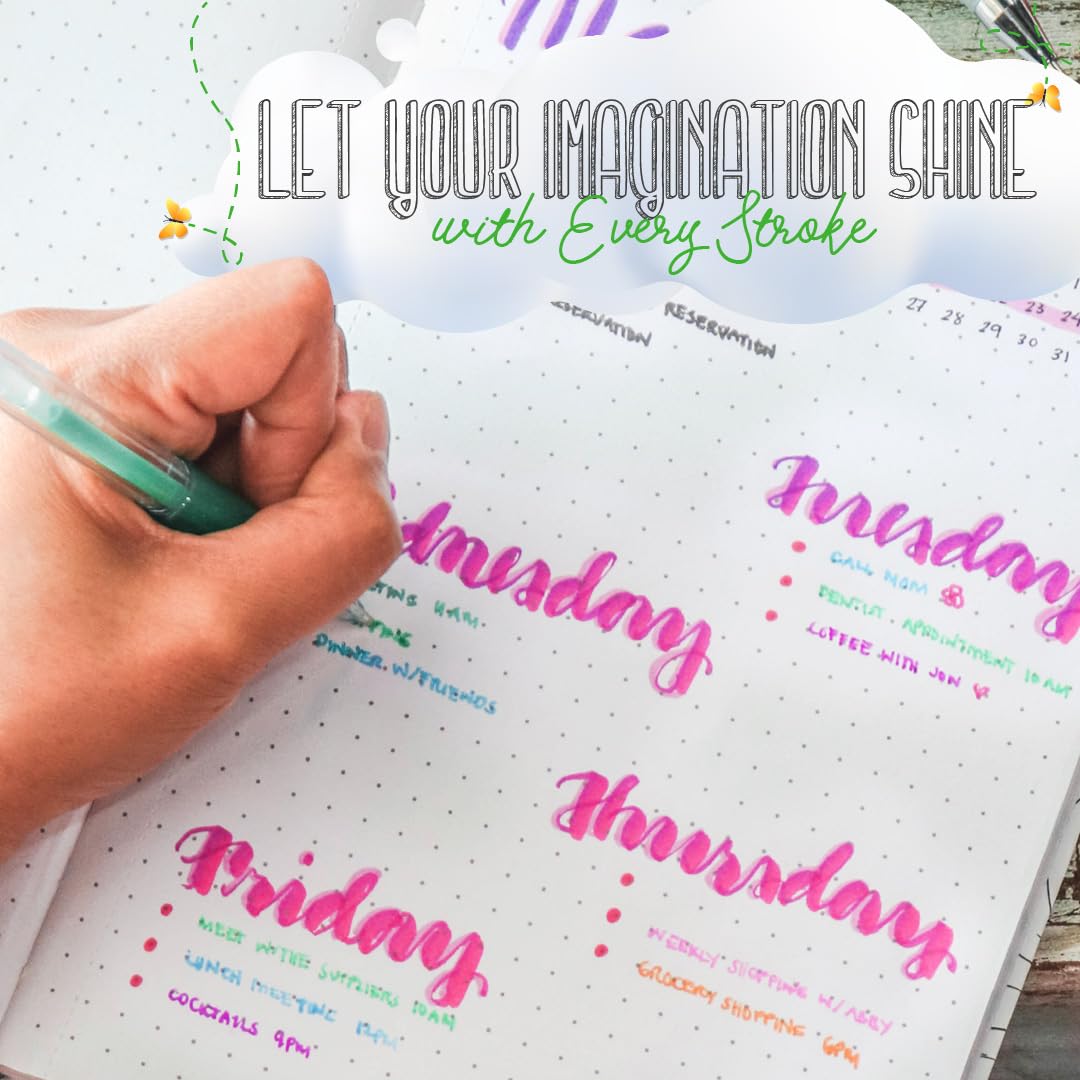 LET YOUR IMAGINATION SHINE
with Every Stroke
RESERVATION
23 24
27 28 29 30 31
Tuesday
CALL MOM
DENTIST APPOINTMENT 10AM
COFFEE WITH JON
DINNER W/FRIENDS
Thursday
WEEKLY SHOPPING W/ ABBY
GROCERY SHOPPING 6PM
Friday
MEET WITH THE SUPPLIERS 10AM
LUNCH MEETING 12PM
COCKTAILS 9PM